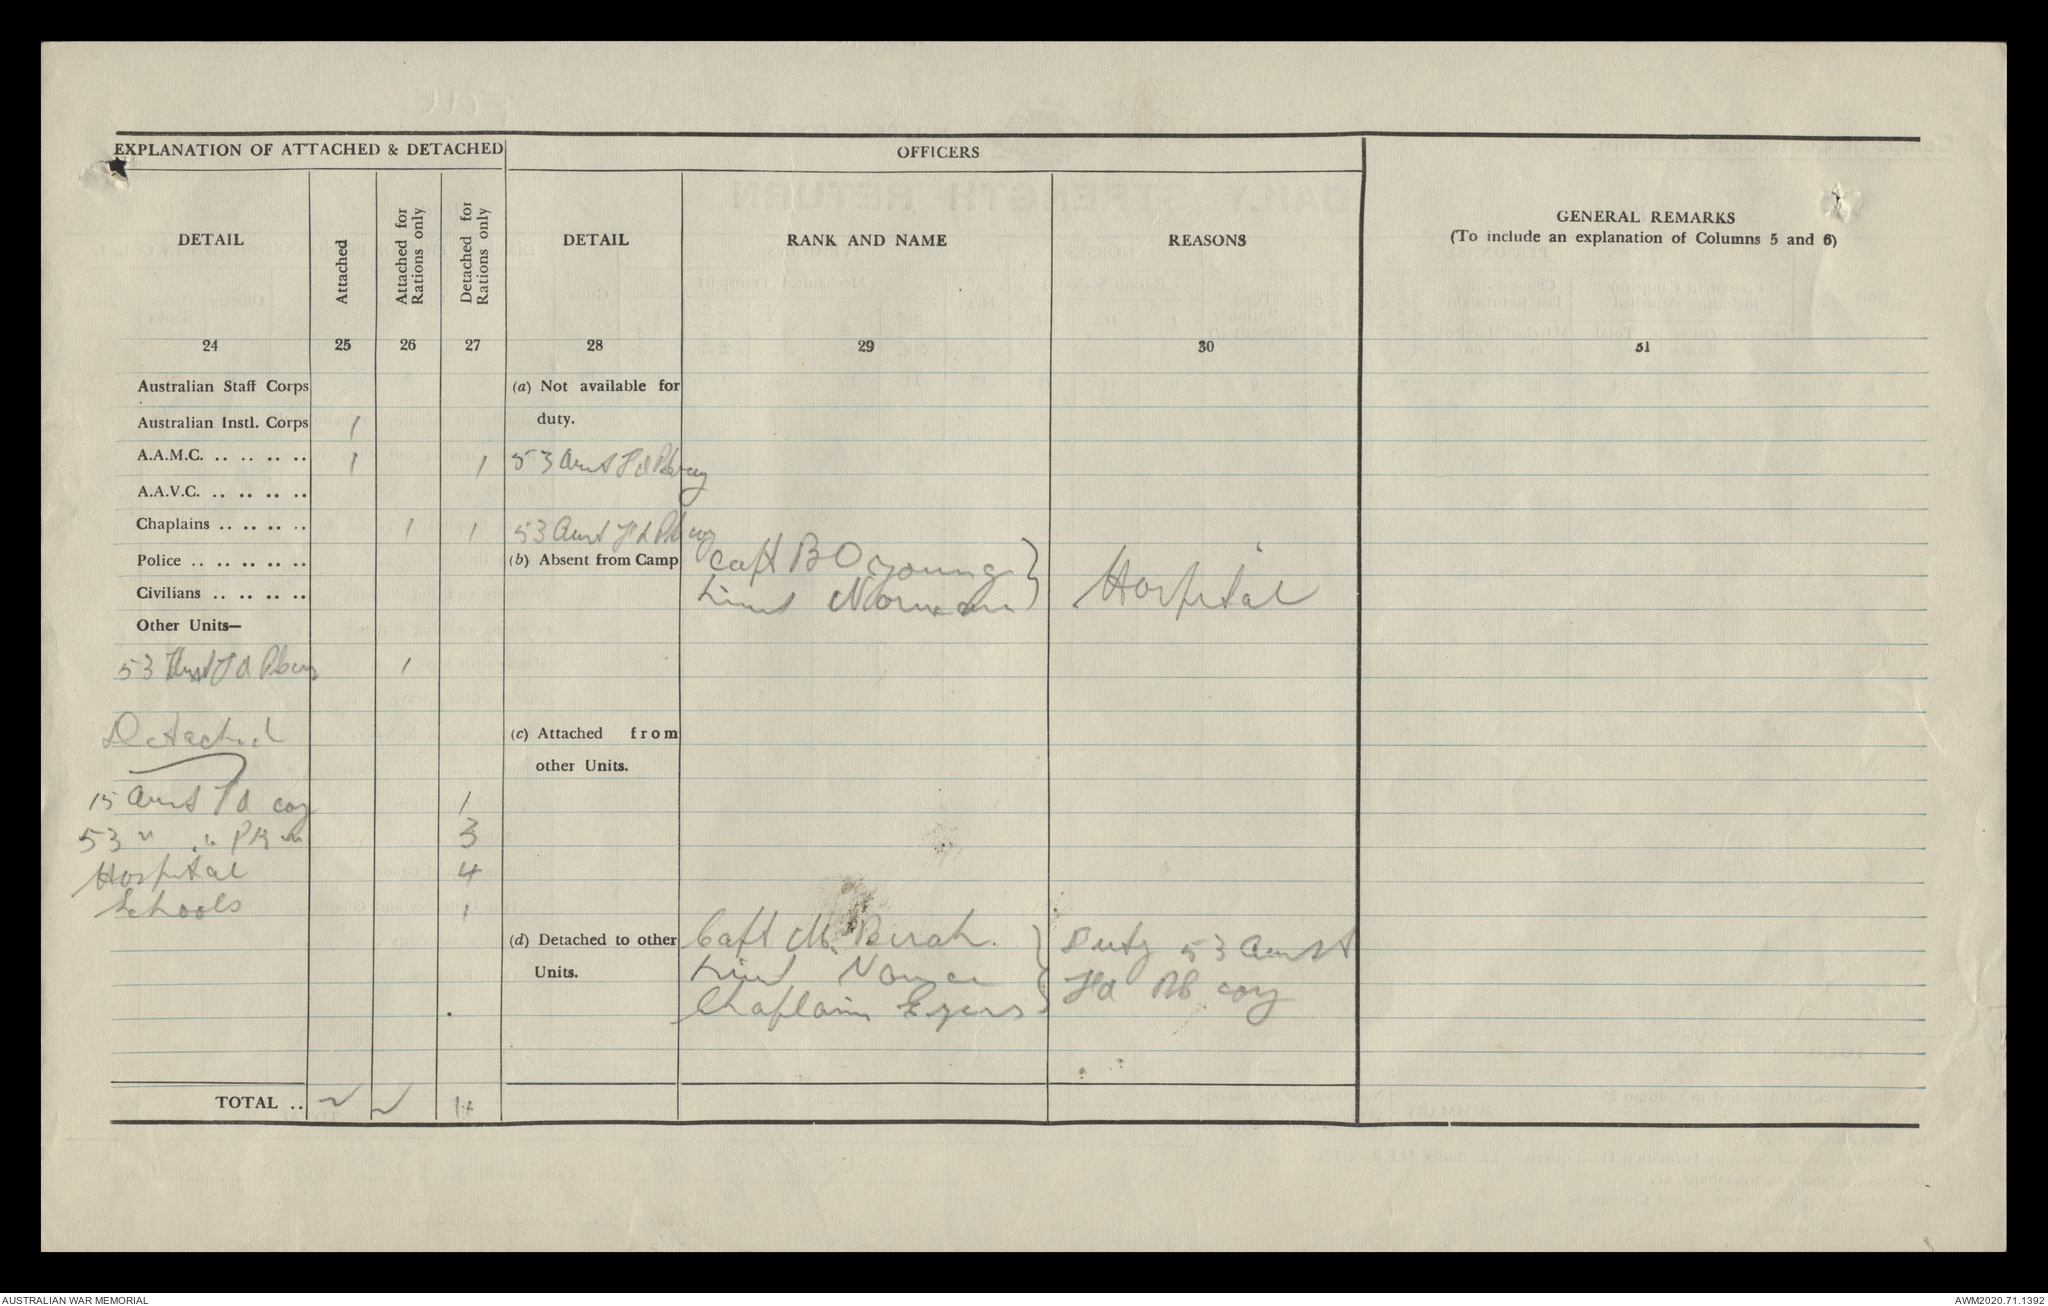 EXPLANATION OF ATTACHED & DETACHED
OFFICERS
GENERAL REMARKS
(To include an explanation of Columns 5 and 6)
DETAIL
Attached
Attached for Rations only
Detached for Rations only
DETAIL
RANK AND NAME
REASONS
24 25 26 27 28 29 30 31
Australian Staff Corps
(a) Not available for
duty.
Australian Instl. Corps 1
A.A.M.C. .. .. .. .. 1 1 53 Aust Fd Pk coy
A.A.V.C. .. .. .. ..
Chaplains .. .. .. .. 1 1 53 Aust Fd Pk coy
Police .. .. .. .. .. (b) Absent from Camp Capt B O Young } Hospital
Civilians .. .. .. .. Lieut Norman
Other Units—
53 Aust Fd Pk coy 1
Detached
(c) Attached from
other Units.
15 Aust Fd coy 1
53 " " PK " 3
Hospital 4
Schools 1
(d) Detached to other Capt Duty 53 Aust
Units. Lieut Fd Pk coy
Chaplain Eyers
TOTAL .. 11
AUSTRALIAN WAR MEMORIAL
AWM2020.71.1392